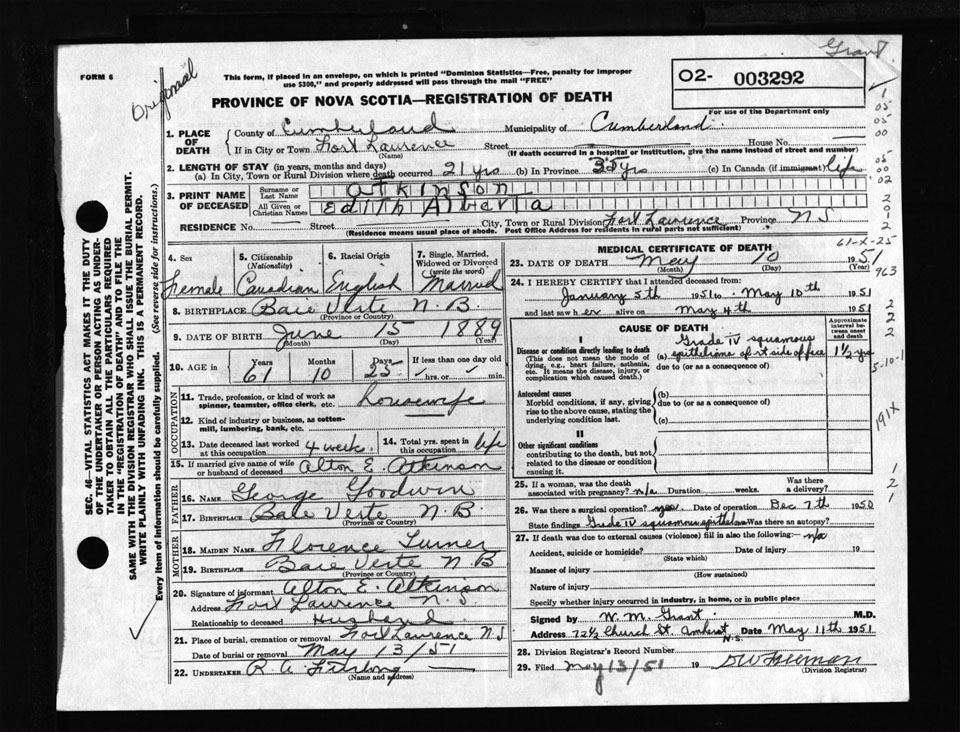 Grant.
FORM 6
Original
This form, if placed in an envelope, on which is printed "Dominion Statistics—Free, penalty for improper
use $300," and properly addressed will pass through the mail "FREE"
O2- 003292
For use of the Department only
PROVINCE OF NOVA SCOTIA—REGISTRATION OF DEATH
1. PLACE OF DEATH
County of Cumberland Municipality of Cumberland
If in City or Town Fort Lawrence Street House No.
(Name) (If death occurred in a hospital or institution, give the name instead of street and number)
2. LENGTH OF STAY (in years, months and days)
(a) In City, Town or Rural Division where death occurred 21 yrs (b) In Province 35 yrs (c) In Canada (if immigrant) life
3. PRINT NAME OF DECEASED
Surname or Last Name: ATKINSON
All Given or Christian Names EDITH Alberta
RESIDENCE No. Street City, Town or Rural Division Fort Lawrence Province N.S
(Residence means usual place of abode. Post Office Address for residents in rural parts not sufficient)
4. Sex Female
5. Citizenship (Nationality) Canadian
6. Racial Origin English
7. Single, Married, Widowed or Divorced (write the word) Married
8. BIRTHPLACE Baie Verte N.B.
(Province or Country)
9. DATE OF BIRTH June 15 1889
(Month) (Day) (Year)
10. AGE in Years 61 Months 10 Days 25 If less than one day old
hrs. or min.
OCCUPATION
11. Trade, profession, or kind of work as
spinner, teamster, office clerk, etc. Housewife
12. Kind of industry or business, as cotten-
mill, lumbering, bank, etc.
13. Date deceased last worked at this occupation 4 week
14. Total yrs. spent in this occupation life
15. If married give name of wife
or husband of deceased Alton E. Atkinson
FATHER
16. NAME George Goodwin
17. BIRTHPLACE Baie Verte N.B.
MOTHER
18. MAIDEN NAME Florence Turner
19. BIRTHPLACE Baie Verte N.B
(Province or Country)
20. Signature of informant Alton E. Atkinson
Address Fort Lawrence N.S
Relationship to deceased Husband
21. Place of burial, cremation or removal Fort Lawrence N.S
Date of burial or removal May 13/51
22. UNDERTAKER R. A. Furlong
(Name and address)
MEDICAL CERTIFICATE OF DEATH
61-X-25
23. DATE OF DEATH May 10 1951
(Month) (Day) (Year)
24. I HEREBY CERTIFY that I attended deceased from:
January 5th 1951 to May 10th 1951
and last saw h er alive on May 4th 1951
CAUSE OF DEATH
Approximate interval between onset and death
I
Disease or condition directly leading to death
(This does not mean the mode of
dying, e.g., heart failure, asthenia,
etc. It means the disease, injury, or
complication which caused death.)
Grade IV squamous
(a) epithelioma of rt side of face 1½ yrs
due to (or as a consequence of)
Antecedent causes
Morbid conditions, if any, giving
rise to the above cause, stating the
underlying condition last.
(b)
due to (or as a consequence of)
(c)
II
Other significant conditions
contributing to the death, but not
related to the disease or condition
causing it.
25. If a woman, was the death
associated with pregnancy? n/a Duration weeks. Was there a delivery?
26. Was there surgical operation? yes Date of operation Dec 7th 1950
State findings Grade IV squamous Was there an autopsy?
27. If death was due to external causes (violence) fill in also the following:- n/a
Accident, suicide or homicide? Date of injury 19
(State which)
Manner of injury
(How sustained)
Nature of injury
Specify whether injury occurred in industry, in home, or in public place
Signed by W. M. Grant M.D.
Address 72½ Church St. Amherst N.S. Date May 11th 1951
28. Division Registrar's Record Number
29. Filed May 13/51 19 DW Freeman
(Division Registrar)
1
05
05
00
05
00
02
2
0
1
2
2
963
2
2
2
5-10-1
191X
1
2
1
SEC. 46—VITAL STATISTICS ACT MAKES IT THE DUTY
OF THE UNDERTAKER OR PERSON ACTING AS UNDER-
TAKER TO OBTAIN ALL THE PARTICULARS REQUIRED
IN THE "REGISTRATION OF DEATH" AND TO FILE THE
SAME WITH THE DIVISION REGISTRAR WHO SHALL ISSUE THE BURIAL PERMIT.
WRITE PLAINLY WITH UNFADING INK. THIS IS A PERMANENT RECORD.
Every item of information should be carefully supplied. (See reverse side for instructions.)